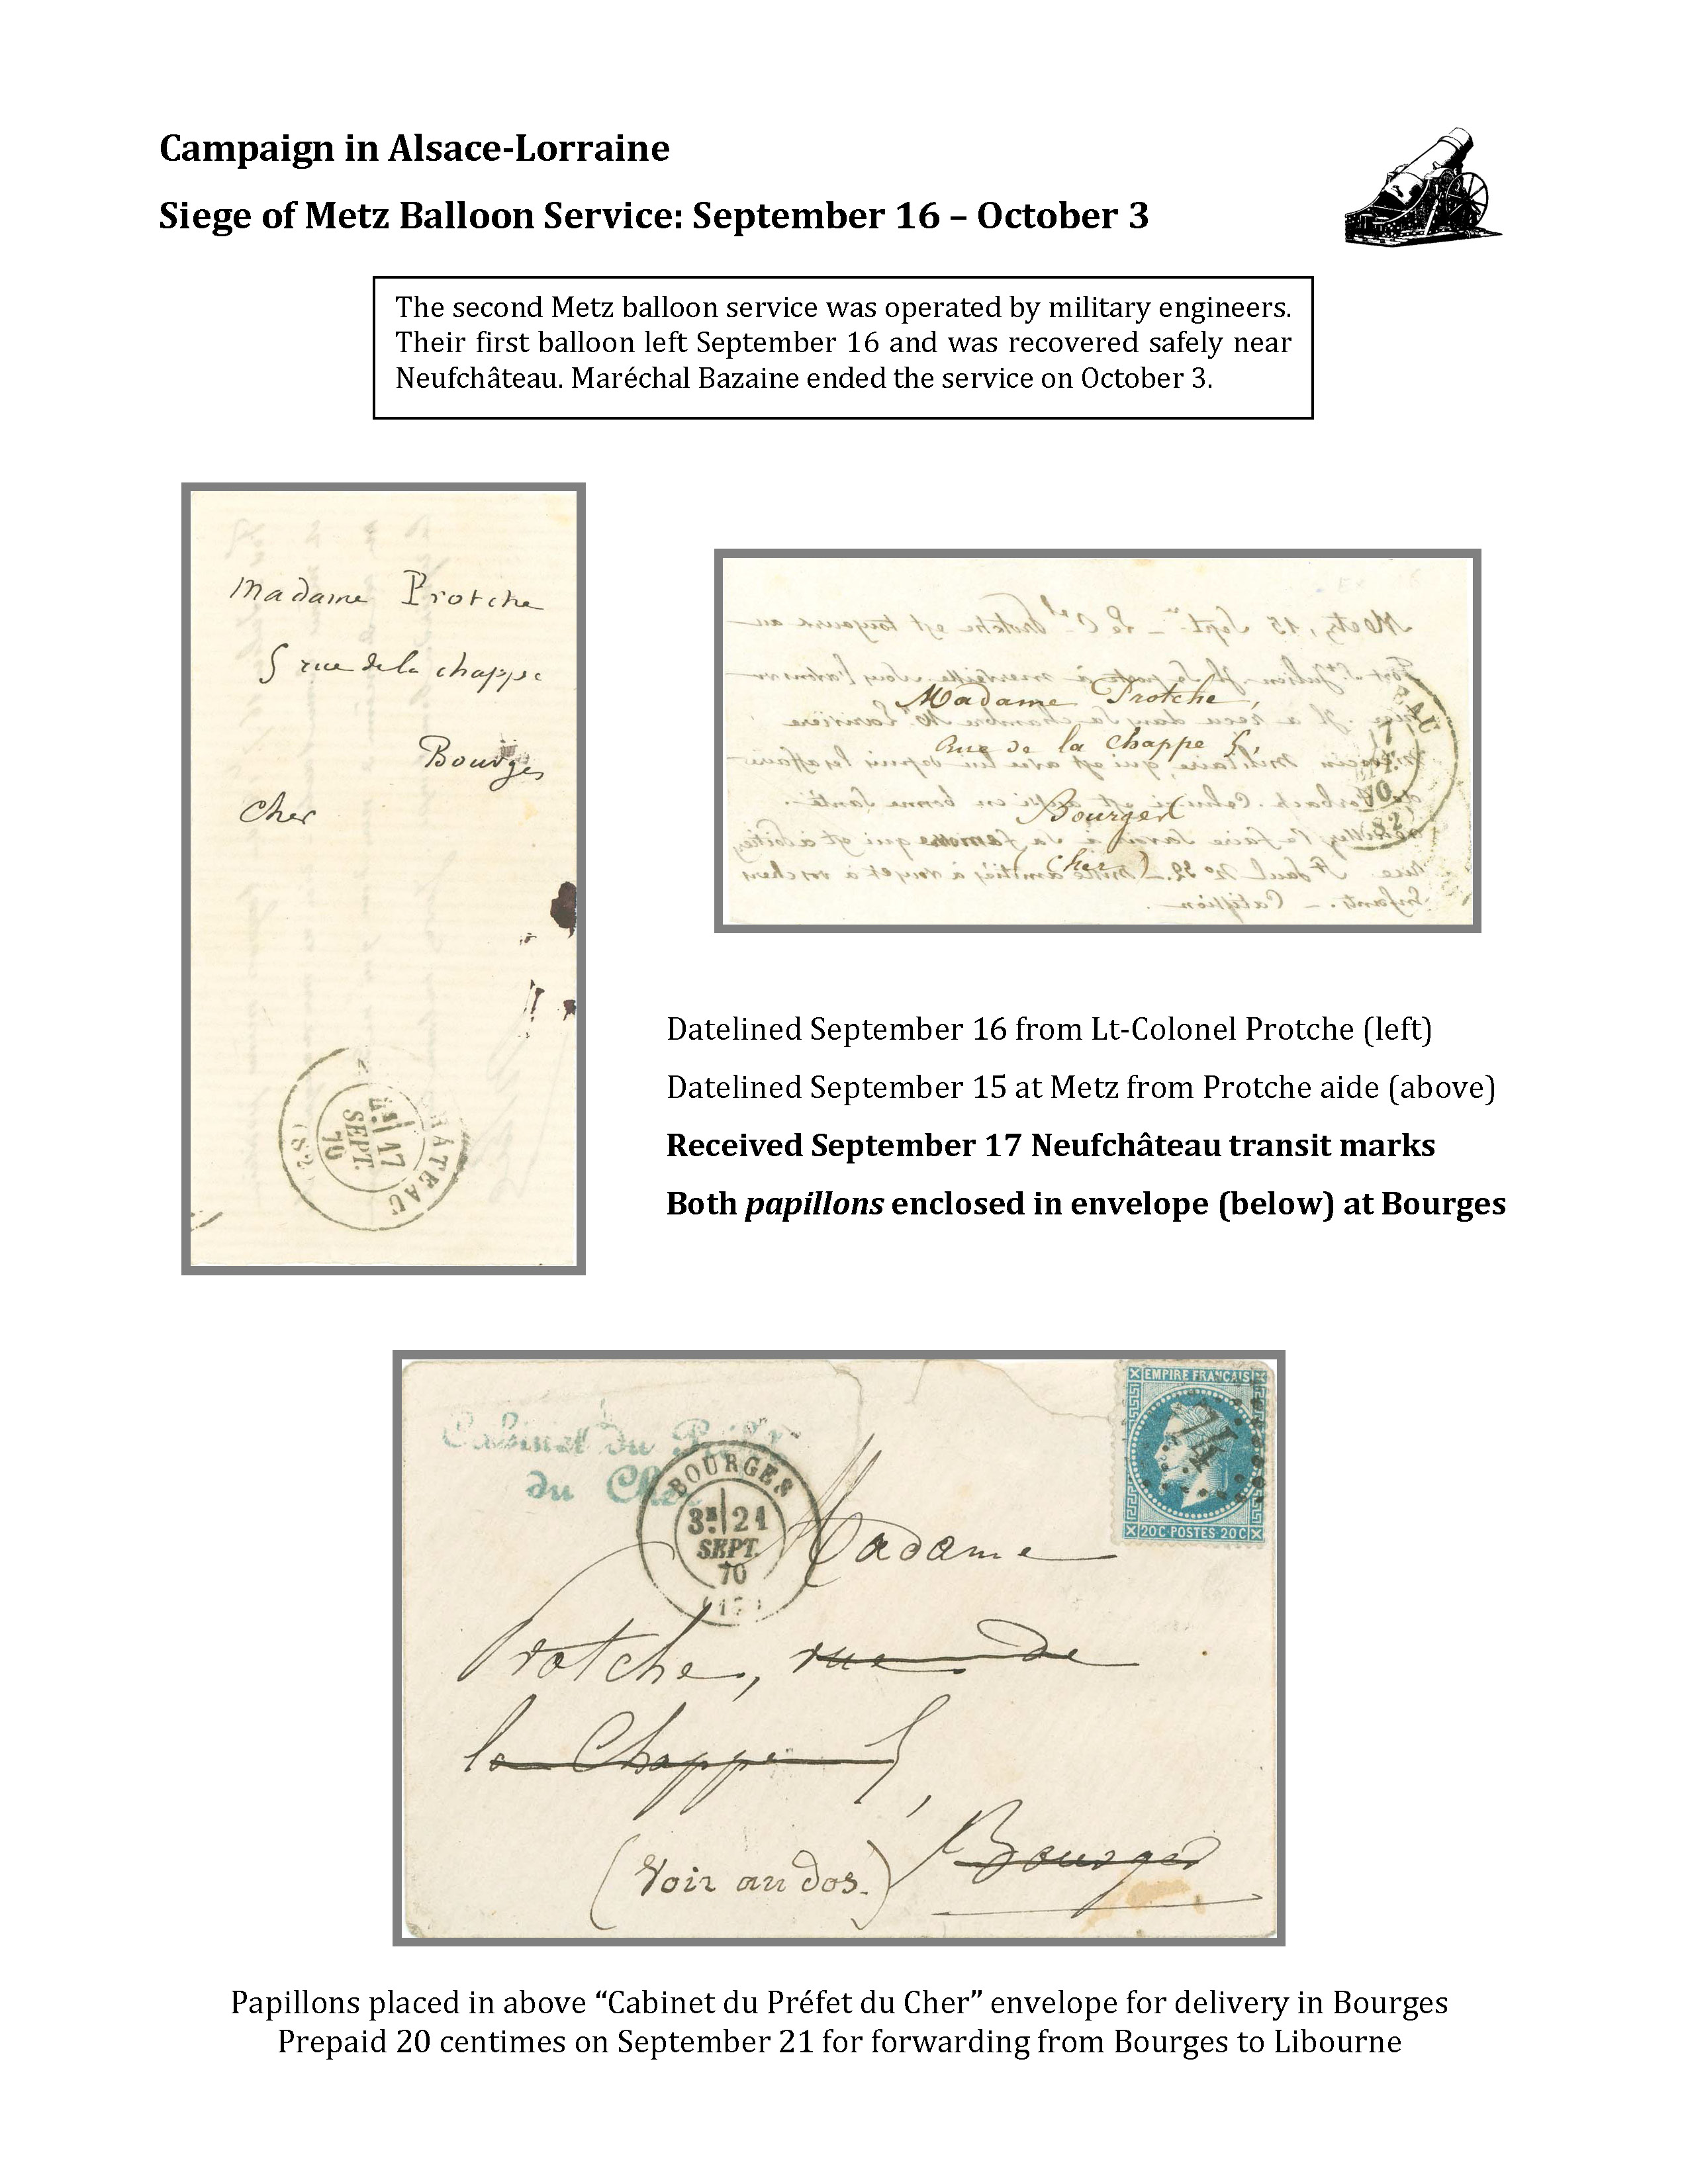 Campaign in Alsace-Lorraine
Siege of Metz Balloon Service: September 16 – October 3
The second Metz balloon service was operated by military engineers.
Their first balloon left September 16 and was recovered safely near
Neufchâteau. Maréchal Bazaine ended the service on October 3.
Madame Protche
5 rue de la chappe
Bourges
Cher
HÂTEAU
17
SEPT.
70
(82)
Metz, 15 Sept. – Le Cel Protche est toujours au
Fort St Julien
Madame Protche,
Rue de la Chappe 5,
Bourges
(Cher)
EAU
17
70
82
Datelined September 16 from Lt-Colonel Protche (left)
Datelined September 15 at Metz from Protche aide (above)
Received September 17 Neufchâteau transit marks
Both papillons enclosed in envelope (below) at Bourges
Cabinet du Préfet
du Cher
BOURGES
3E 21
SEPT.
70
EMPIRE FRANÇAIS
20C POSTES 20C
Madame
Protche, rue de
la Chappe 5,
Bourges
(Voir au dos.)
Papillons placed in above “Cabinet du Préfet du Cher” envelope for delivery in Bourges
Prepaid 20 centimes on September 21 for forwarding from Bourges to Libourne